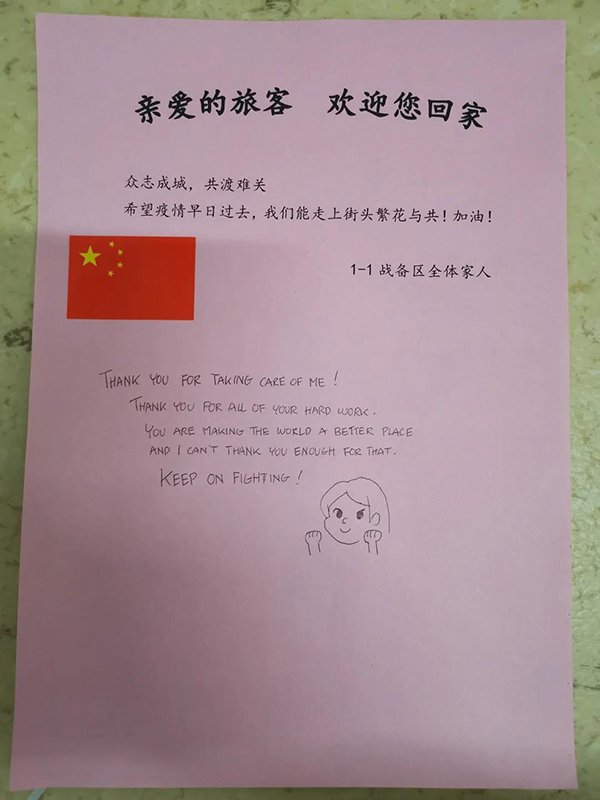 亲爱的旅客 欢迎您回家
众志成城，共渡难关
希望疫情早日过去，我们能走上街头繁花与共！加油！
1-1 战备区全体家人
THANK YOU FOR TAKING CARE OF ME !
THANK YOU FOR ALL OF YOUR HARD WORK.
YOU ARE MAKING THE WORLD A BETTER PLACE
AND I CAN'T THANK YOU ENOUGH FOR THAT.
KEEP ON FIGHTING !